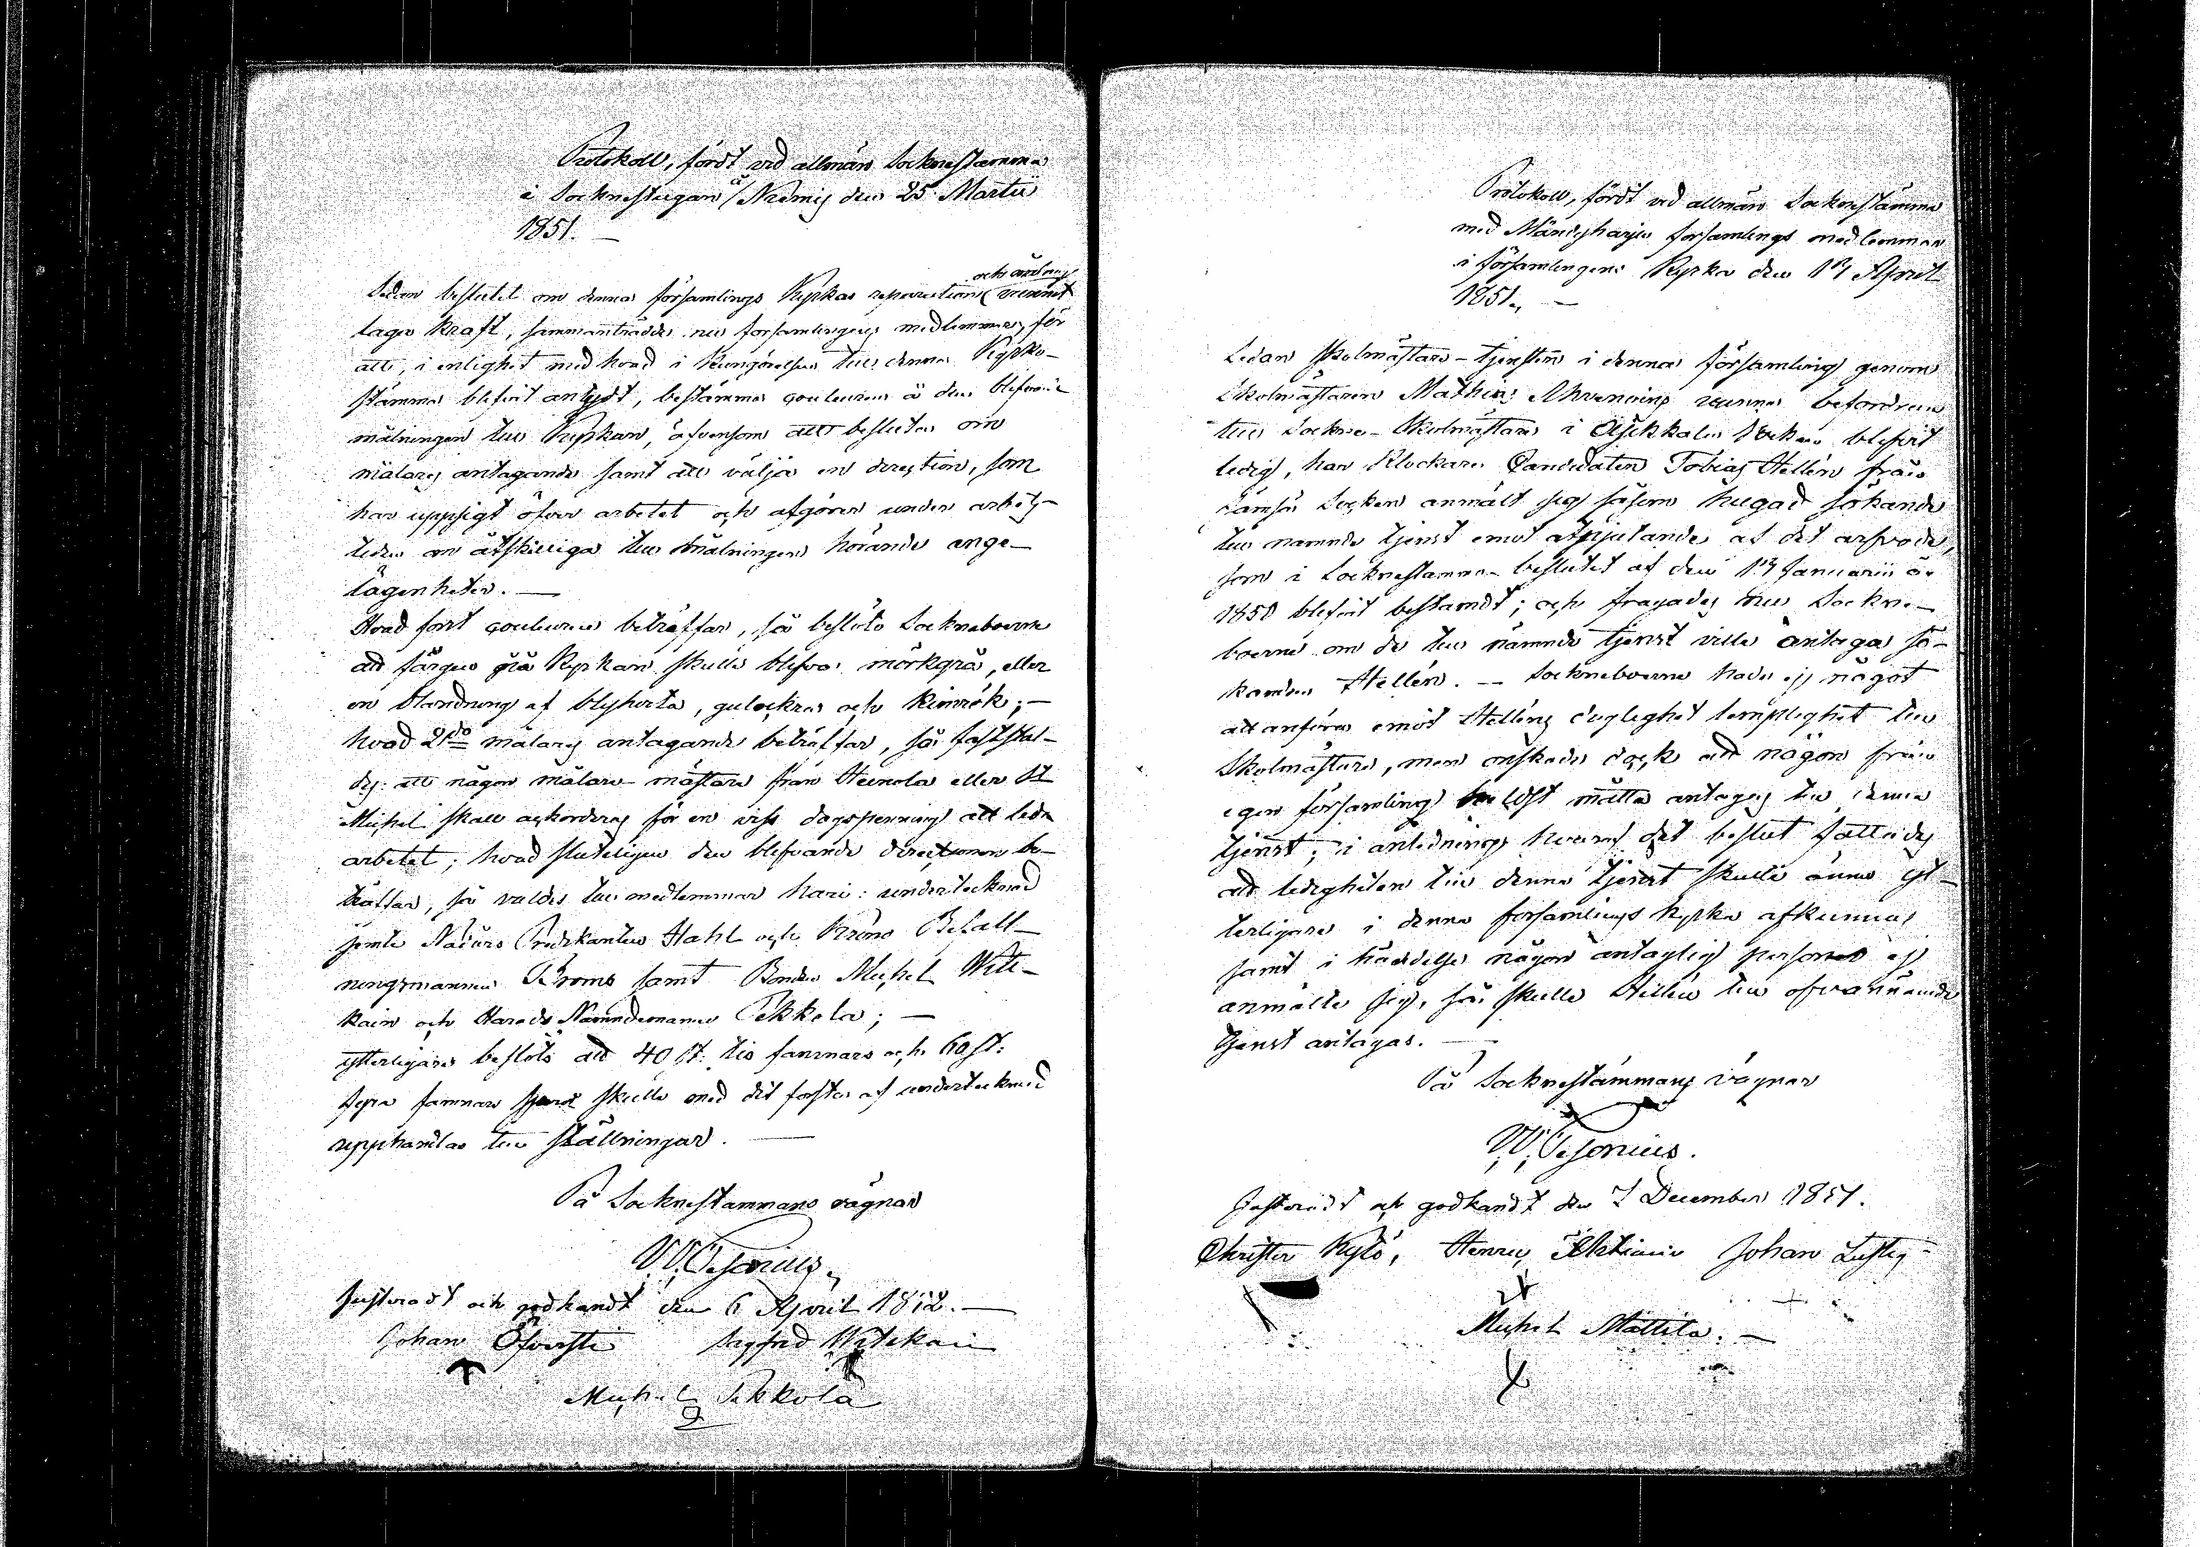 Protokoll, fördt vid allmän Socknestämma
i Socknestugan å Niemis den 25 Martii
1851. —
och målning
Sedan beslutet om denna församlings Kyrkas reparation vunnit
laga kraft, sammanträdde nu församlingens medlemmar, för
att, i enlighet med hvad i Kungörelsen till denna Kyrko-
stämma blifvit antydt, bestämma couleuren å den blifvande
målningen till Kyrkan, äfvensom att besluta om
målares antagande samt att välja en direction, som
har uppsigt öfver arbetet och afgöra under arbets-
tiden om åtskilliga till målningen hörande ange-
lägenheter. —
Hvad först couleuren beträffar, så beslöto Sockneboerne
att färgen på Kyrkan skulle blifva mörkgrå, eller
en blandning af blyhvita, gulockra och kimrök; —
hvad 2do målares antagande beträffar, så fastställ-
des att någon målare-mästare från Heinola eller St
Michel skall ackorderas för en viss dagspenning att leda
arbetet; hvad sluteligen den blifvande directionen be-
träffar, så valdes till medlemmar häri: undertecknad
jemte Predikanten Stahl och Krono Befall-
ningsmannen Broms samt Bonden Michel Wite-
kain och Härads Nämndemannen Pekkola; —
ytterligare beslöts att 40 st: tio famnars och 60 st:
sju famnars skulle med det första af undertecknad
upphandlas till ställningar. —
På Socknestämmans vägnar
W. Cesonius.
Justeradt och godkändt den 6 April 1852. —
Johan Öfversti Sigfrid Witikain
Michel Pekkola
Protokoll, fördt vid allmän Socknestämma
med Mändyharju församlings medlemmar
i församlingens Kyrka den 14 April
1851. —
Sedan Skolmästare-tjensten i denna församling genom
Skolmästaren Mathias Ahvenains vunna befordran
till Sockne-Skolmästare i Asikkala Socken blifvit
ledig, har Klockare Candidaten Tobias Hellén från
Jämsä Socken anmält sig såsom hugad sökande
till nämnde tjenst emot åtnjutande af det arfvode,
som i Socknestämma beslutet af den 14 Januarii år
1850 blifvit bestämdt; och frågades nu Sockne-
boerne om de till nämnde tjenst ville antaga sö-
kanden Hellén. — Sockneboerne hade ej något
att anföra emot Helléns duglighet lämplighet till
Skolmästare, men önskade dock att någon från
egen församling helst måtte antagas till denna
tjenst; i anledning hvaraf det beslut fattades
att ledigheten till denna tjenst skulle ännu yt-
terligare i denna församlings kyrka afkunnas
samt i händelse någon antaglig person ej
anmälte sig, så skulle Hellén till ofvannämnde
tjenst antagas. —
På Socknestämmans vägnar
W. Cesonius.
Justeradt och godkändt den 7 December 1851.
Christer Kylö, Henric Johan Lustig
Michel Mattila. —